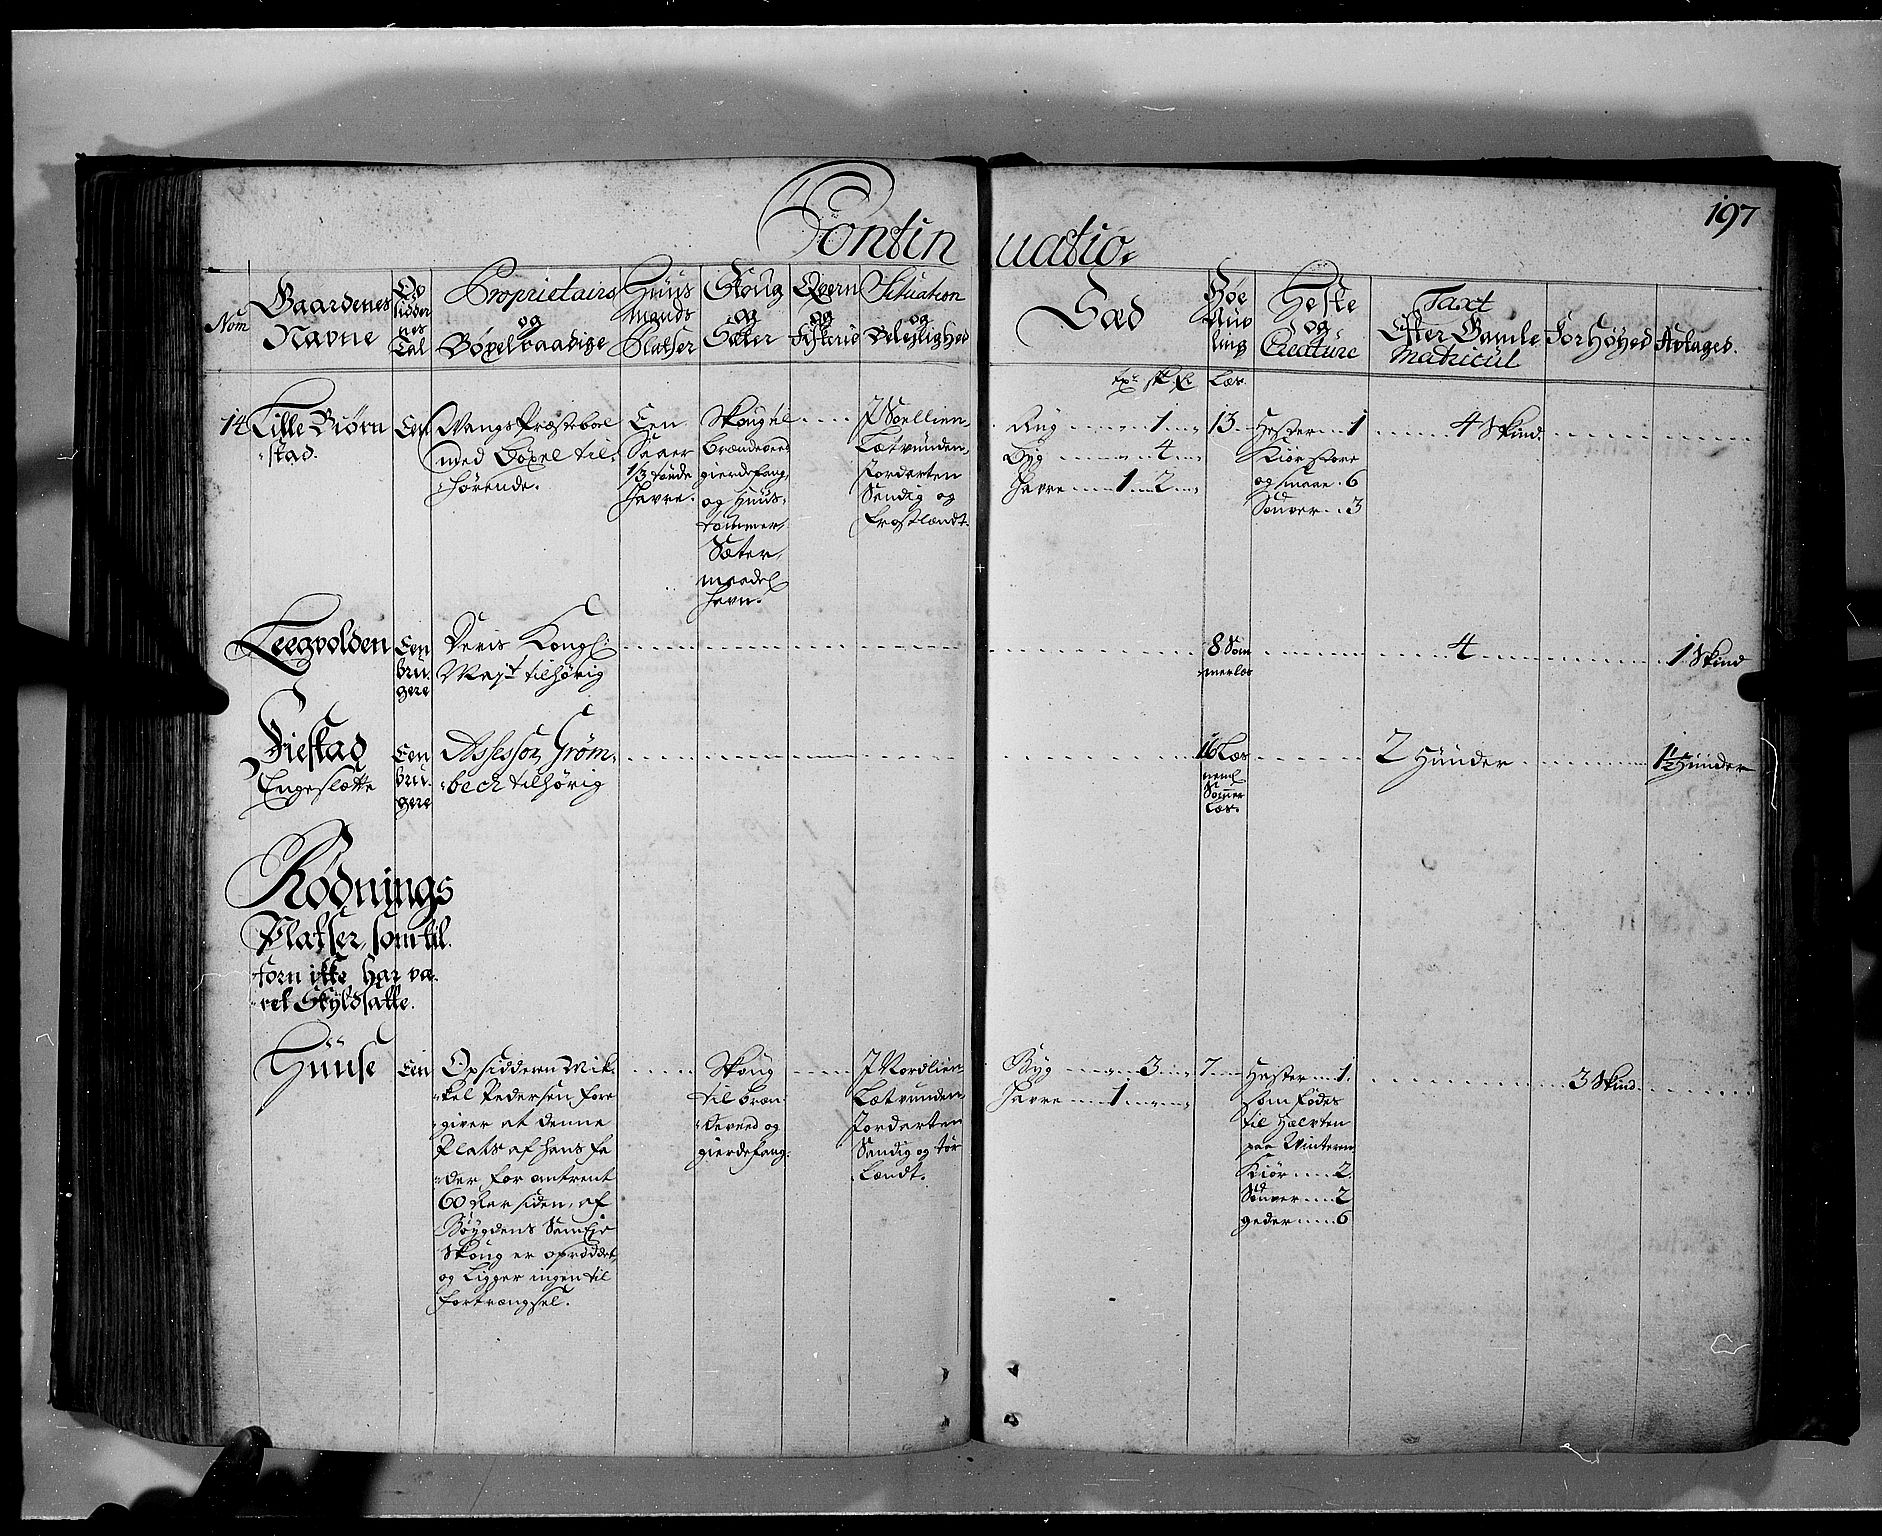 Contin uatio.
197
Nom
Gaardenes
Navne
Op
sidder
nes
Tal
Proprietairs
og
Bøxelraadige
Huus
Mands
Platser
Skoug
og
Sæter
Qvern
og
Fiskerie
Situation
og
Beleylighed
Sæd
Høe
Auv
ling
Heste
og
Creature
Taxt
Efter Gamle
Matricul
Forhøyed
Aflaged.
14
Lille Biørn
stad.
Een
Vangs Præsteboel
med Bøxel til
hørende.
Een
Saaer
1/3 tønde
Havre.
Skoug til
brændeveed
gierdefang,
og Huus
tømmer,
Sæter,
maadel
havn.
I Soellien,
Letvunden,
Jordarten
Sandig og
frostlændt.
Læs.
Rug 1
Byg 4
Havre 1 2
13
Hester 1
Kiør store
og smaae 6
Souver 3
4 Skind.
Leegvolden
Een
bru
gere
Deris Kongl:
Mayt tilhørig
8 Som
merlæs
4
1 Skind
Fiestad
Engeslætte
Een
bru
gere
Assessor Grøm
bech tilhørig
16 Læs
neml
Sommer
Læs.
2 Hunder
1½ Hunder
Rødnings
Platser, som til
forn ikke har væ
ret Skyldsatte.
Huuse
Een
Opsidderen Mik
kel Pedersen fore
giver at denne
Plats af hans fa
der for omtrent
60 Aar siden, af
Bøygdens Sameje
Skoug er opryddet,
og Ligger ingen til
fortrængsel.
Skoug
til bræn
deveed og
gierdefang.
I Nordlien
Letvunden,
Jordarten
Sandig og tør
Lændt.
Byg 3
Havre 1
7
Hester 1
som fødes
til Hælvten
paa Vinteren
Kiør 2
Souver 2
geder 6
3 Skind.